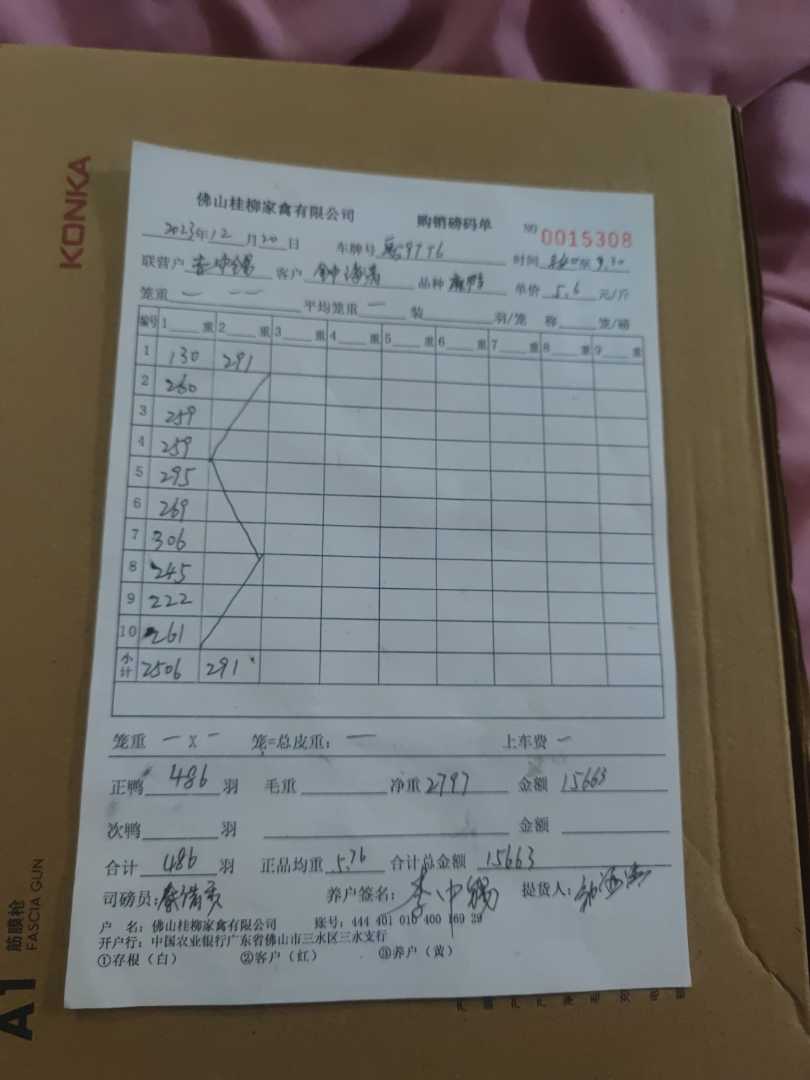 KONKA
佛山桂柳家禽有限公司 购销磅码单 NO 0015308
2023年12月20日 车牌号 9776 时间 至9.30
联营户 李中锡 客户 品种 麻鸭 单价 5.6 元/斤
笼重 一 一一 平均笼重 一 装 羽/笼 称 笼/磅
编号 1 重 2 重 3 重 4 重 5 重 6 重 7 重 8 重 9 重
1 130 291
2 260
3 259
4 259
5 295
6 269
7 306
8 245
9 222
10 261
小计 2506 291
笼重 一 X 一 笼=总皮重: 一 上车费 一
正鸭 486 羽 毛重 净重 2797 金额 15663
次鸭 羽 金额
合计 486 羽 正品均重 5.76 合计总金额 15663
司磅员: 养户签名: 李中锡 提货人:
户 名: 佛山桂柳家禽有限公司 账号: 444 401 010 400 169 29
开户行: 中国农业银行广东省佛山市三水区三水支行
①存根（白） ②客户（红） ③养户（黄）
A1 筋膜枪
FASCIA GUN